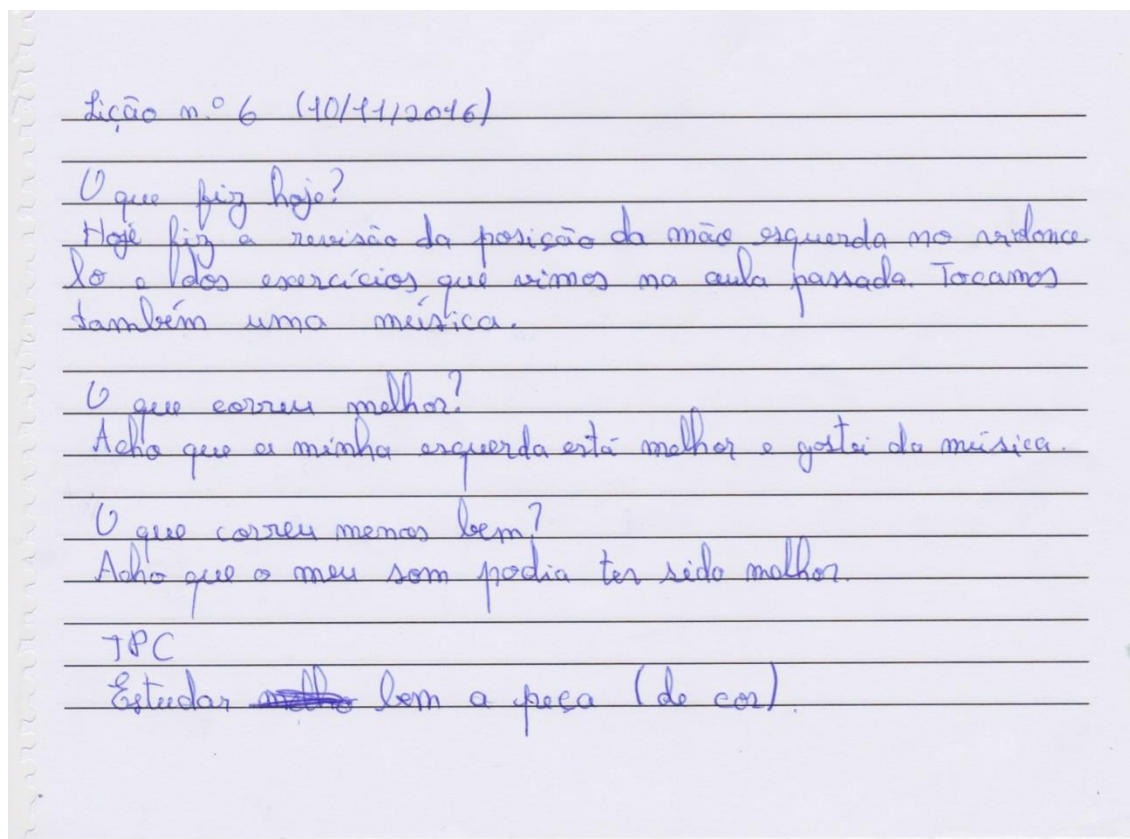 Lição n.º 6 (10/11/2016)
O que fiz hoje?
Hoje fiz a revisão da posição da mão esquerda no violonce
lo e dos exercícios que vimos na aula passada. Tocamos
também uma música.
O que correu melhor?
Acho que a minha esquerda está melhor e gostei da música.
O que correu menos bem?
Acho que o meu som podia ter sido melhor.
TPC
Estudar bem a peça (de cor).